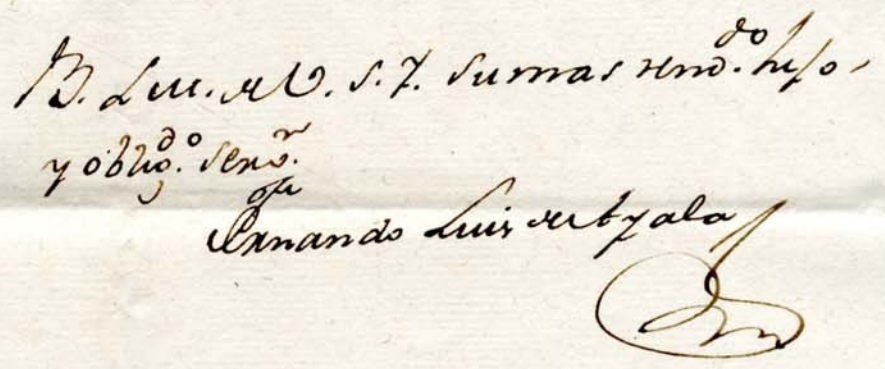 B. L. M. de V. S. Y. su mas rend.do hijo,
y oblig.do serv.r
Fernando Luis de Ayala